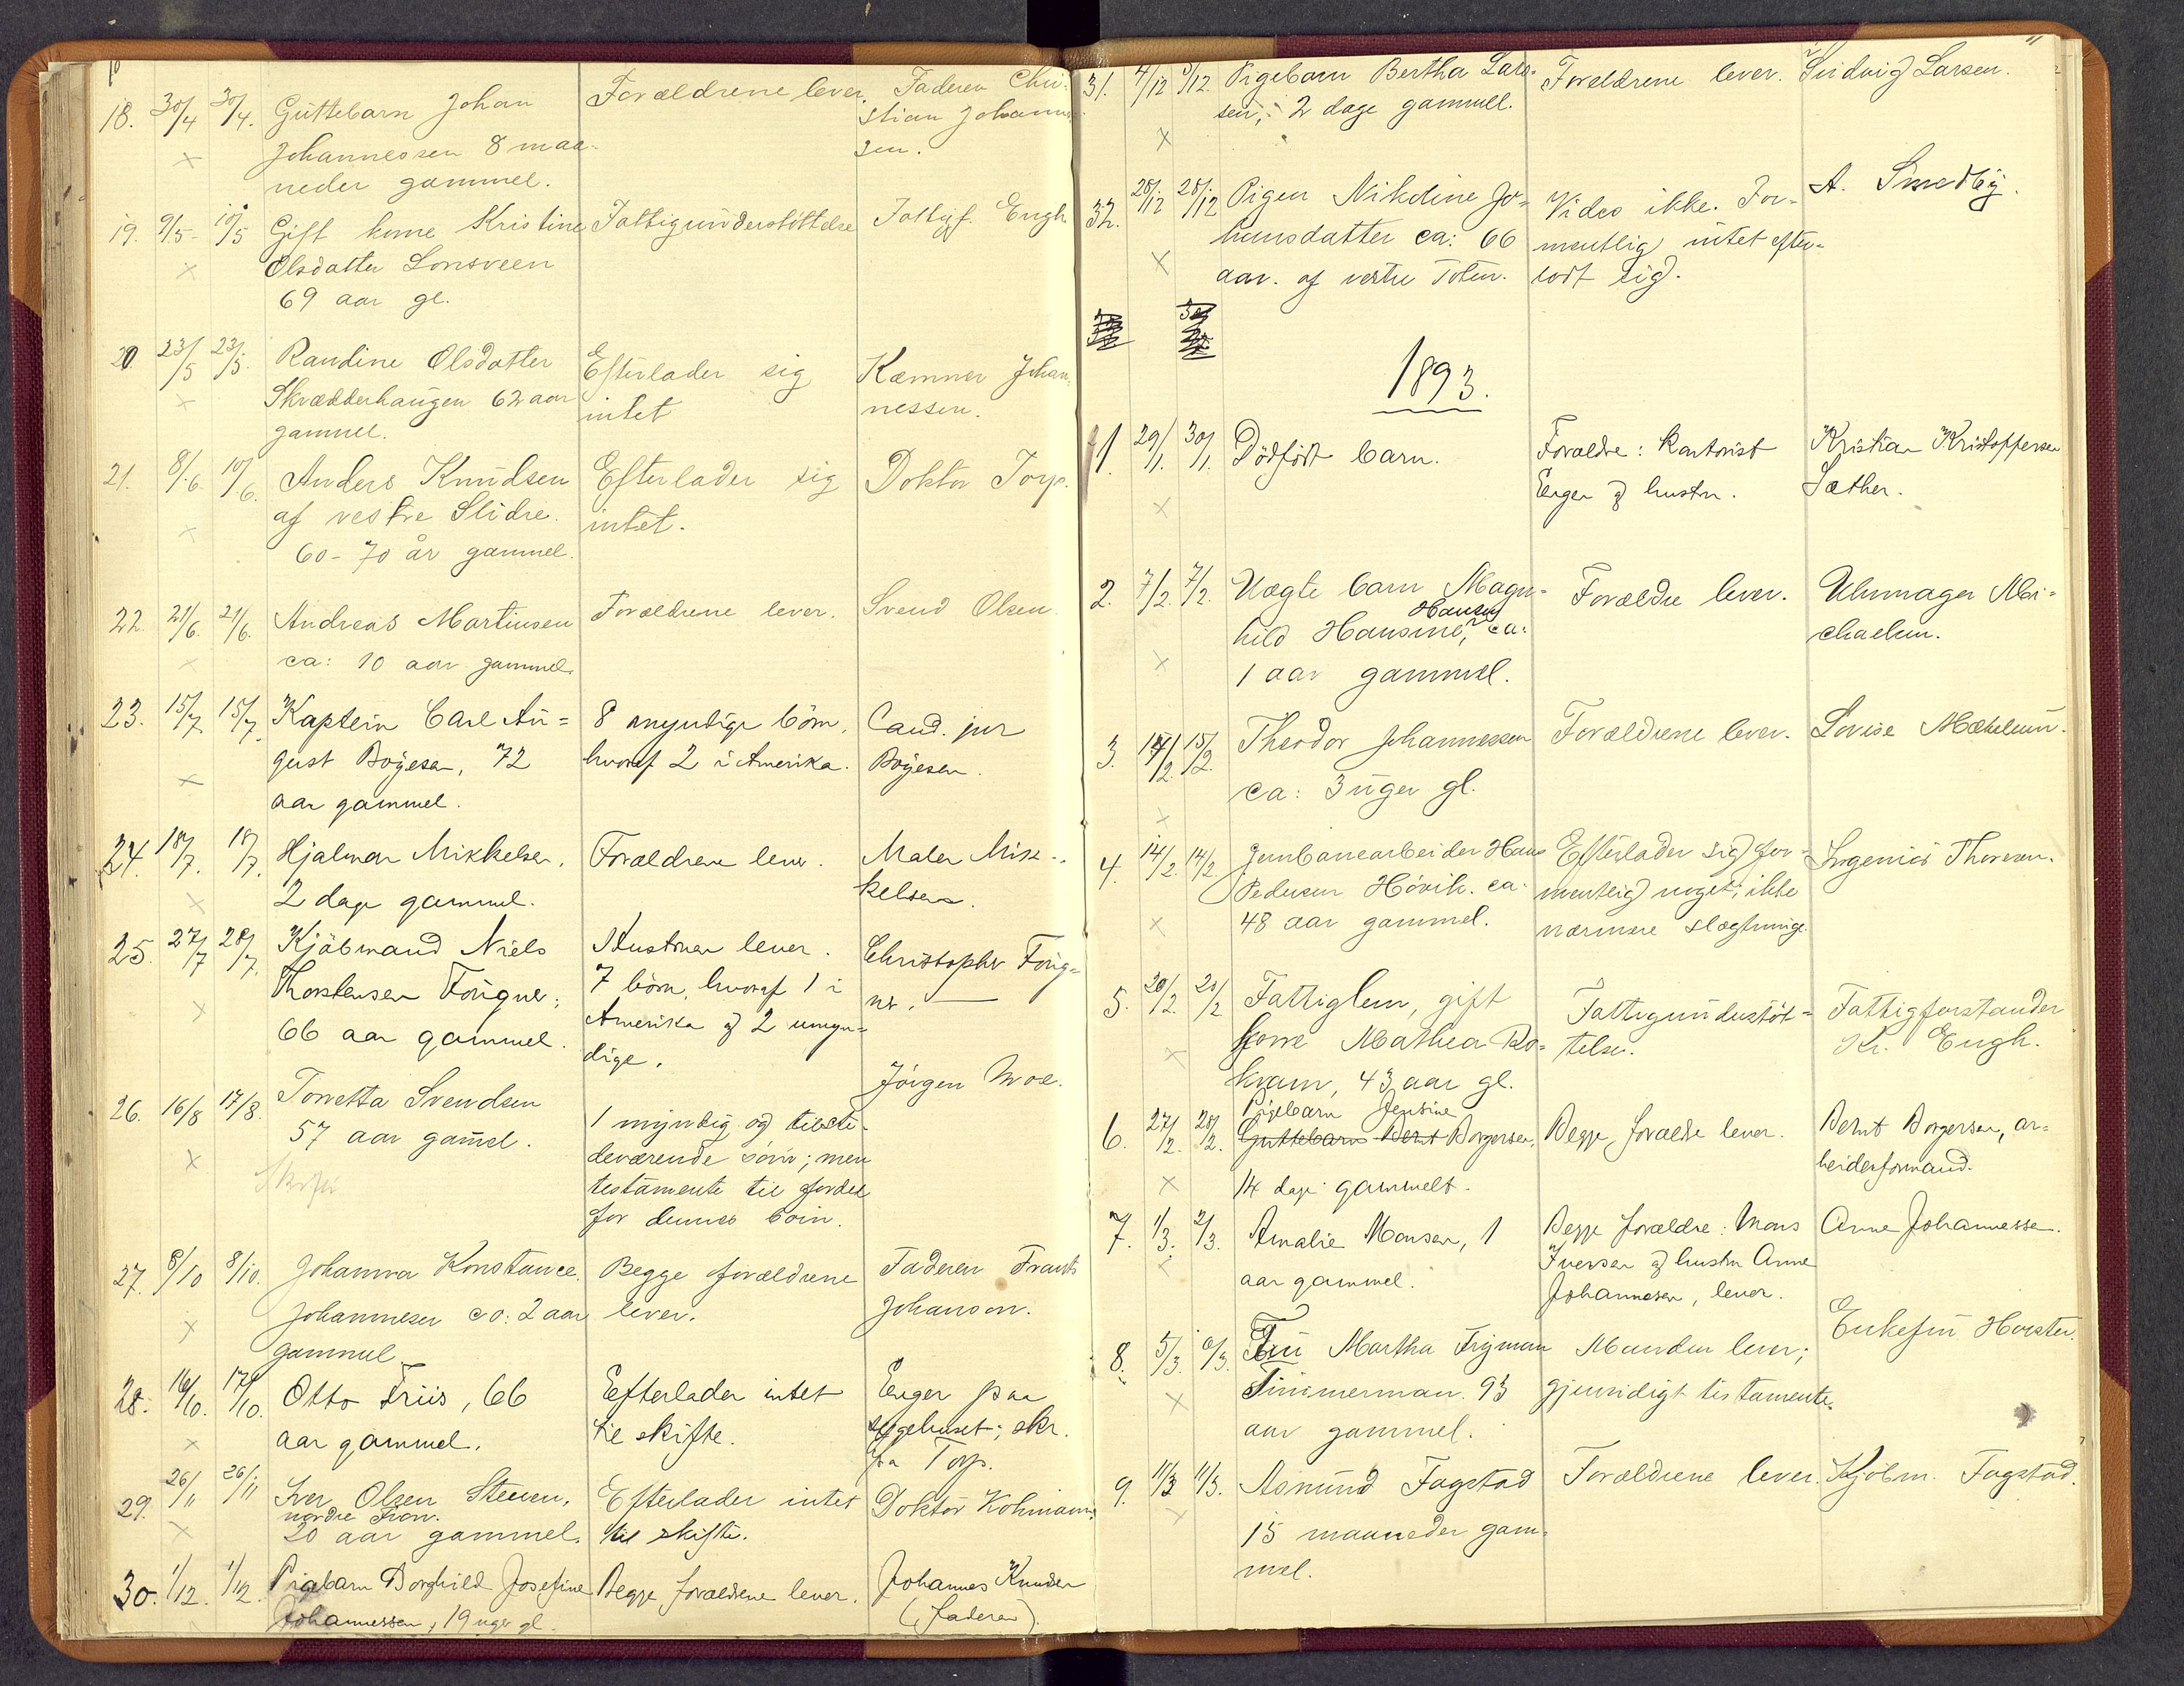 10
18. 30/4 30/4. Guttebarn Johan Forældrene lever. Faderen Chri-
Johannessen 8 maa- stian Johannes-
neder gammel. sen.
19. 9/5- 10/5 Gift kone Kristine Fattigunderstöttelse Fattigf. Engh
Olsdatter Lonsveen
69 aar gl.
20 23/5 23/5. Randine Olsdatter Efterlader sig Kæmner Johan-
Skrædderhaugen 62 aar intet nessen.
gammel.
21. 8/6 10/6. Anders Knudsen Efterlader sig Doktor Torp.
af vestre Slidre. intet.
60-70 år gammel.
22. 21/6. 21/6. Andreas Martinsen Forældrene lever. Svend Olsen
ca: 10 aar gammel.
23. 15/7 15/7. Kaptein Carl Au= 8 myndige börn, Cand. jur
gust Böyesen, 72 hvoraf 2 i Amerika. Böyesen.
aar gammel.
24. 18/7. 18/7. Hjalmar Mikkelsen, Forældrene lever. Maler Mik-
2 dage gammel. kelsen.
25. 27/7 28/7. Kjöbmand Niels Hustruen lever. Christopher Foug=
Thorstensen Fougner; 7 börn, hvoraf 1 i ner.
66 aar gammel. Amerika og 2 umyn=
dige.
26. 16/8 17/8. Torretta Svendsen Jörgen Moe.
57 aar gamel. 1 myndig og tilste-
deværende sönn; men
testamente til fordel
for dennes börn.
27. 8/10 8/10. Johanna Konstance Begge forældrene Faderen Frants
Johannesen ca: 2 aar lever. Johanson.
gammel
28. 16/10. 17/10. Otto Friis, 66 Efterlader intet Enger paa
aar gammel. til skifte. sygehuset; skr.
fra Torp.
29. 26/11 26/11 Iver Olsen Steeen, Efterlader intet Doktor Kohmann
nordre Fron. til skifte.
20 aar gammel.
30. 1/12. 1/12. Pigebarn Borghild Josefine Begge forældrene lever. Johannes Knudsen
Johannessen, 19 uger gl. (faderen)
11
31. 4/12 5/12. Pigebarn Bertha Lar- Forældrene lever. Ludvig Larsen.
sen, 2 dage gammel.
32. 28/12 28/12 Pigen Nikoline Jo= Vides ikke. For- A. Smedby.
hansdatter ca: 66 mentlig intet efter-
aar. af vestre Toten. ladt sig.
1893.
1. 29/1. 30/1. Dödfödt barn. Forældre: kontorist Kristian Kristoffersen
Enger og hustru. Sæther.
2. 7/2. 7/2. Uægte barn Magn= Forældre lever. Uhrmager Mi=
hild Hansine Hansen, ca: chaelsen.
1 aar gammel.
3. 14/2 15/2. Theodor Johannessen Forældrene lever. Lovise
ca: 3 uger gl.
4. 14/2. 14/2 Jernbanearbeider Hans Efterlader sig for- Ingeniör Thoresen.
Pedersen Hövik. ca. mentlig noget; ikke
48 aar gammel. nærmere slægtninge.
5. 20/2. 20/2 Fattiglem, gift Fattigunderstöt= Fattigforstander
kone Mathea Ro= telse. Kr. Engh.
kvam, 43 aar gl.
6. 27/2. 28/2. Pigebarn Jensine
Guttebarn Bernt Borgersen, Begge forældre lever. Bernt Borgersen, ar=
14 dage gammelt. beiderformand.
7. 1/3. 2/3. Amalie Monsen, 1 Begge forældre: Mons Anne Johannessen.
aar gammel. Iversen og hustru Anne
Johannesen, lever.
8. 5/3. 6/3. Fru Martha Frijman Manden lever; Enkefru Horster.
Timmerman. 93 gjensidigt testamente.
aar gammel.
9. 11/3 11/3. Asmund Fagstad Forældrene lever. Kjöbm. Fagstad.
15 maaneder gam-
mel.